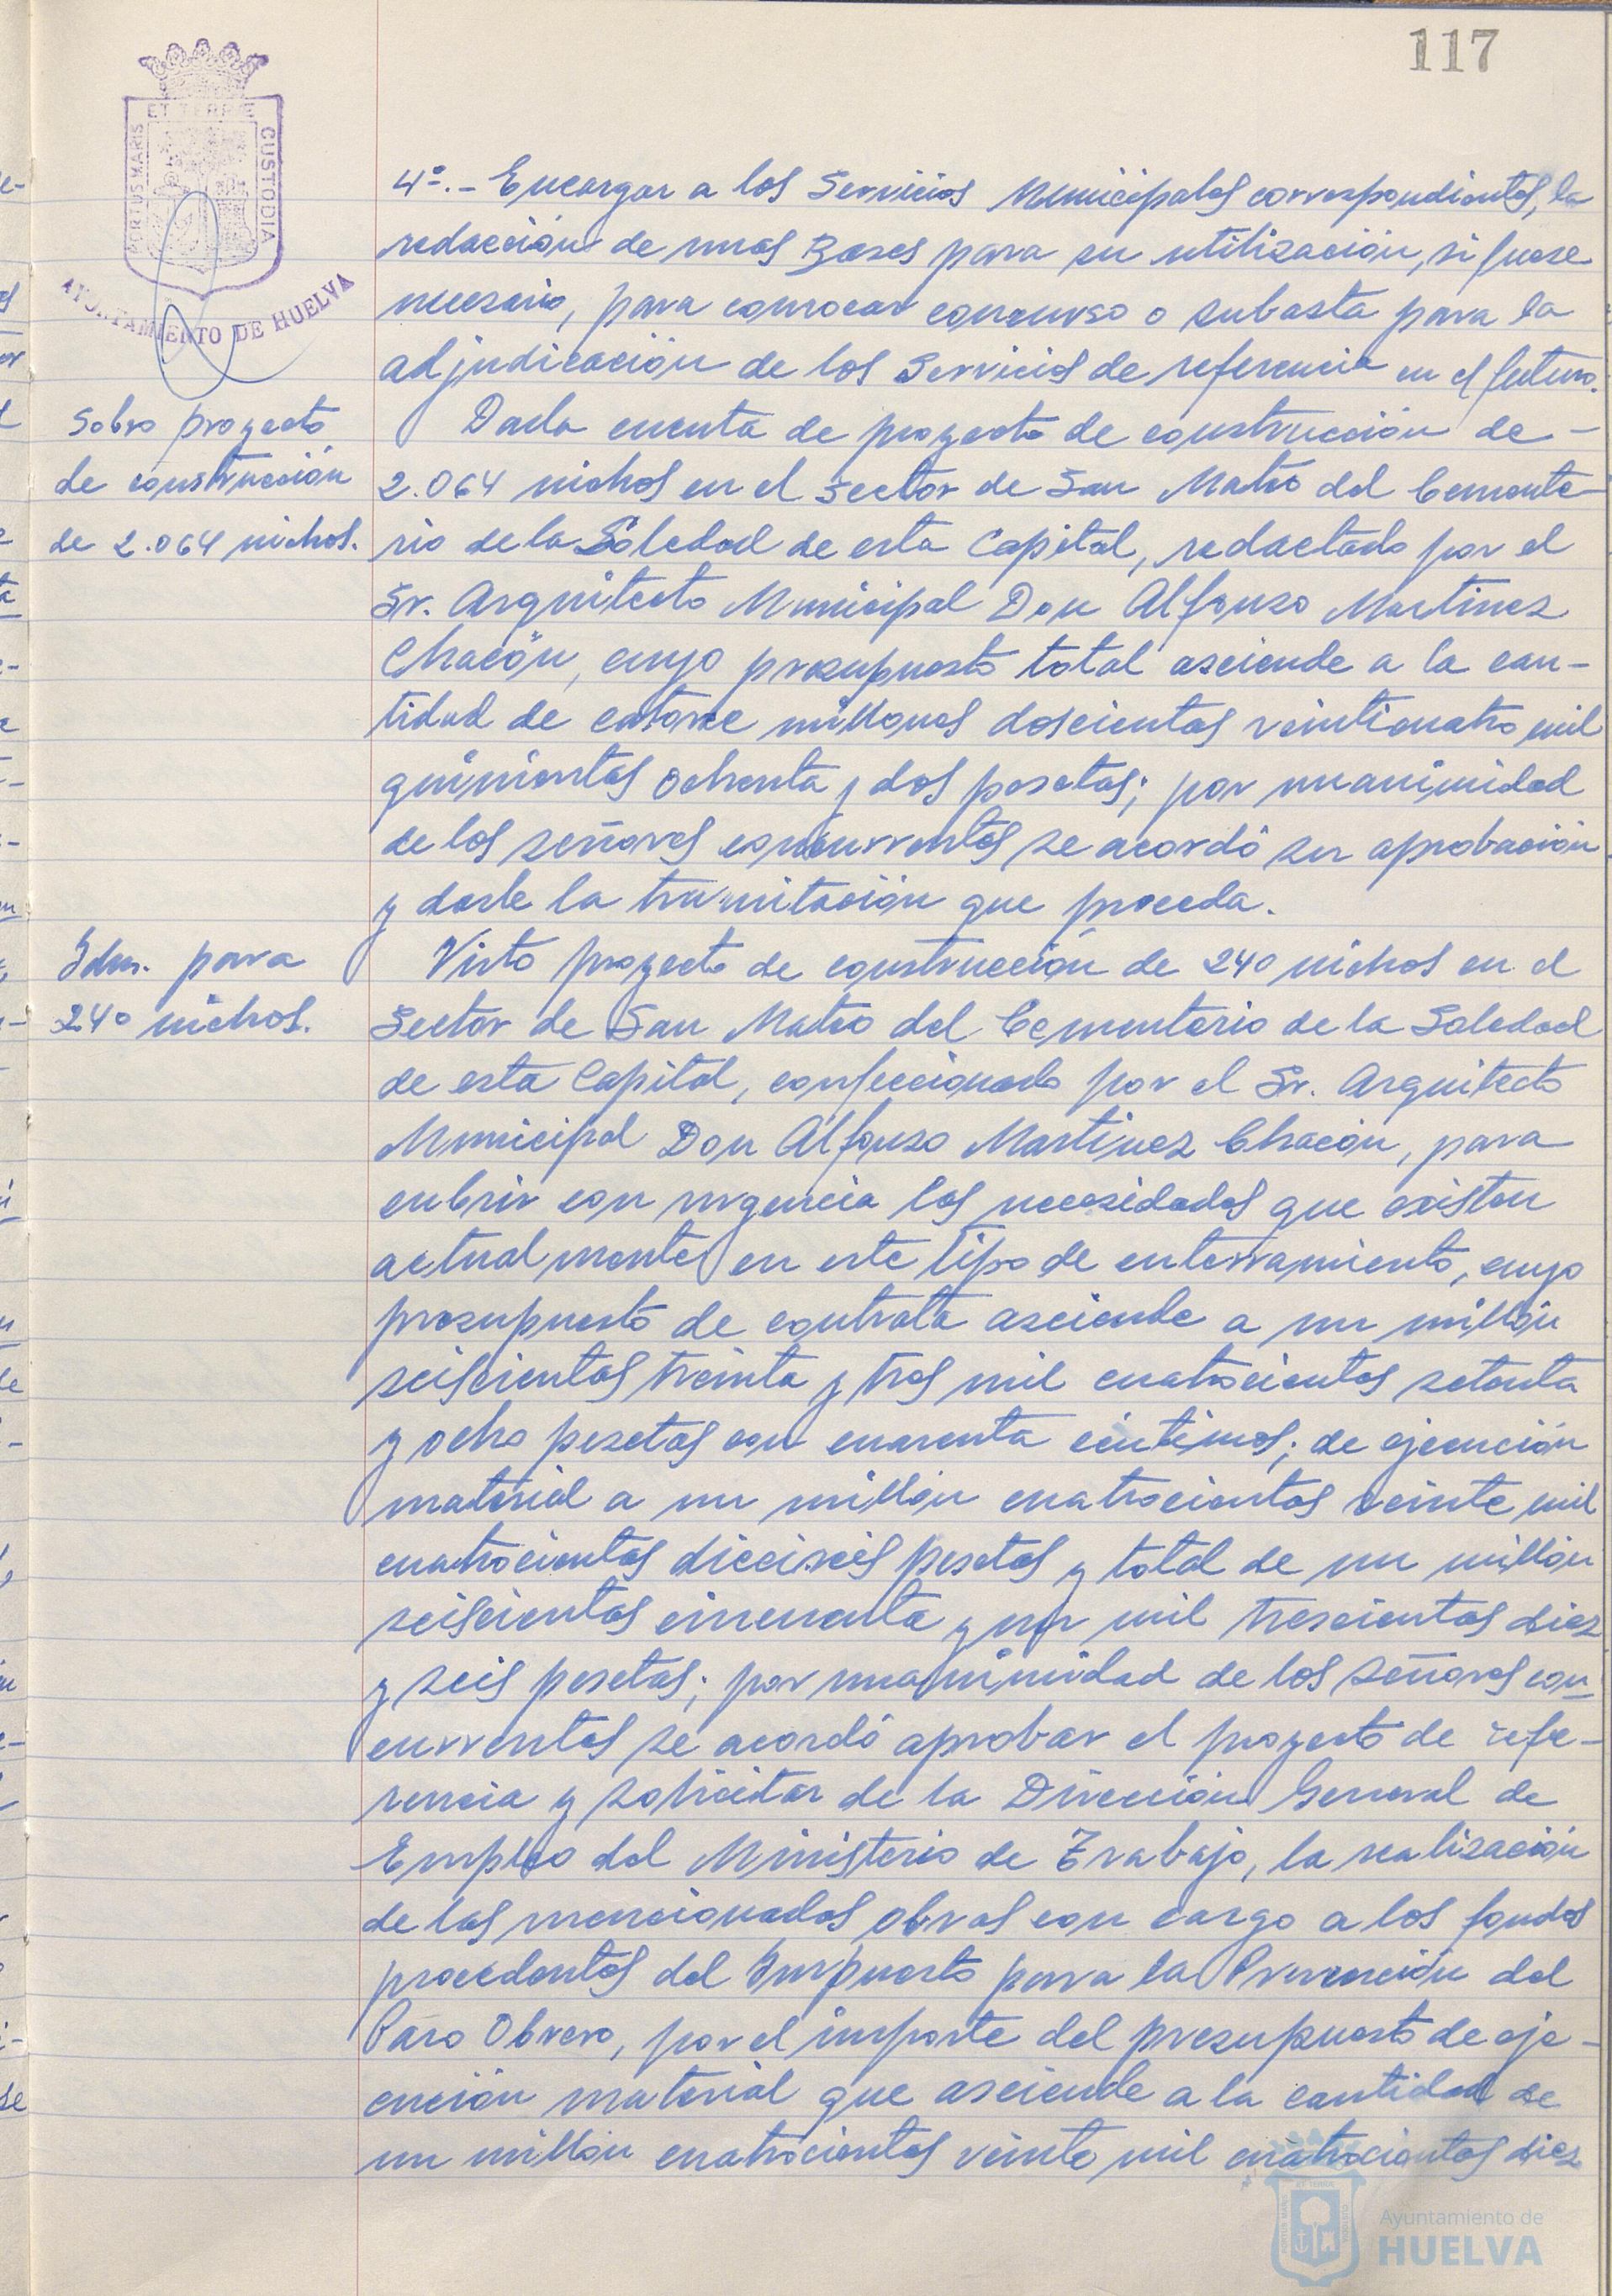 117
ET TERRÆ
PORTUS MARIS
CUSTODIA
AYUNTAMIENTO DE HUELVA
4º.- Encargar a los Servicios Municipales correspondientes, la
redacción de unas Bases para su utilización, si fuese
necesario, para convocar concurso o subasta para la
adjudicación de los Servicios de referencia en el futuro.
Sobre proyecto
de construcción
de 2.064 nichos.
Dada cuenta de proyecto de construcción de -
2.064 nichos en el Sector de San Mateo del Cemente-
rio de la Soledad de esta Capital, redactado por el
Sr. Arquitecto Municipal Don Alfonso Martinez
Chacón, cuyo presupuesto total asciende a la can-
tidad de catorce millones doscientas veinticuatro mil
quinientas ochenta y dos pesetas; por unanimidad
de los señores concurrentes se acordó su aprobación
y darle la tramitación que proceda.
Idm. para
240 nichos.
Visto proyecto de construcción de 240 nichos en el
Sector de San Mateo del Cementerio de la Soledad
de esta Capital, confeccionado por el Sr. Arquitecto
Municipal Don Alfonso Martinez Chacón, para
cubrir con urgencia las necesidades que existen
actualmente en este tipo de enterramiento, cuyo
presupuesto de contrata asciende a un millón
seiscientas treinta y tres mil cuatrocientas setenta
y ocho pesetas con cuarenta céntimos; de ejecución
material a un millón cuatrocientas veinte mil
cuatrocientas dieciseis pesetas y total de un millón
seiscientas cincuenta y un mil trescientas diez
y seis pesetas; por unanimidad de los señores con-
currentes se acordó aprobar el proyecto de refe-
rencia y solicitar de la Dirección General de
Empleo del Ministerio de Trabajo, la realización
de las mencionadas obras con cargo a los fondos
procedentes del Impuesto para la Prevención del
Paro Obrero, por el importe del presupuesto de eje-
cución material que asciende a la cantidad de
un millón cuatrocientas veinte mil cuatrocientas diez
Ayuntamiento de
HUELVA